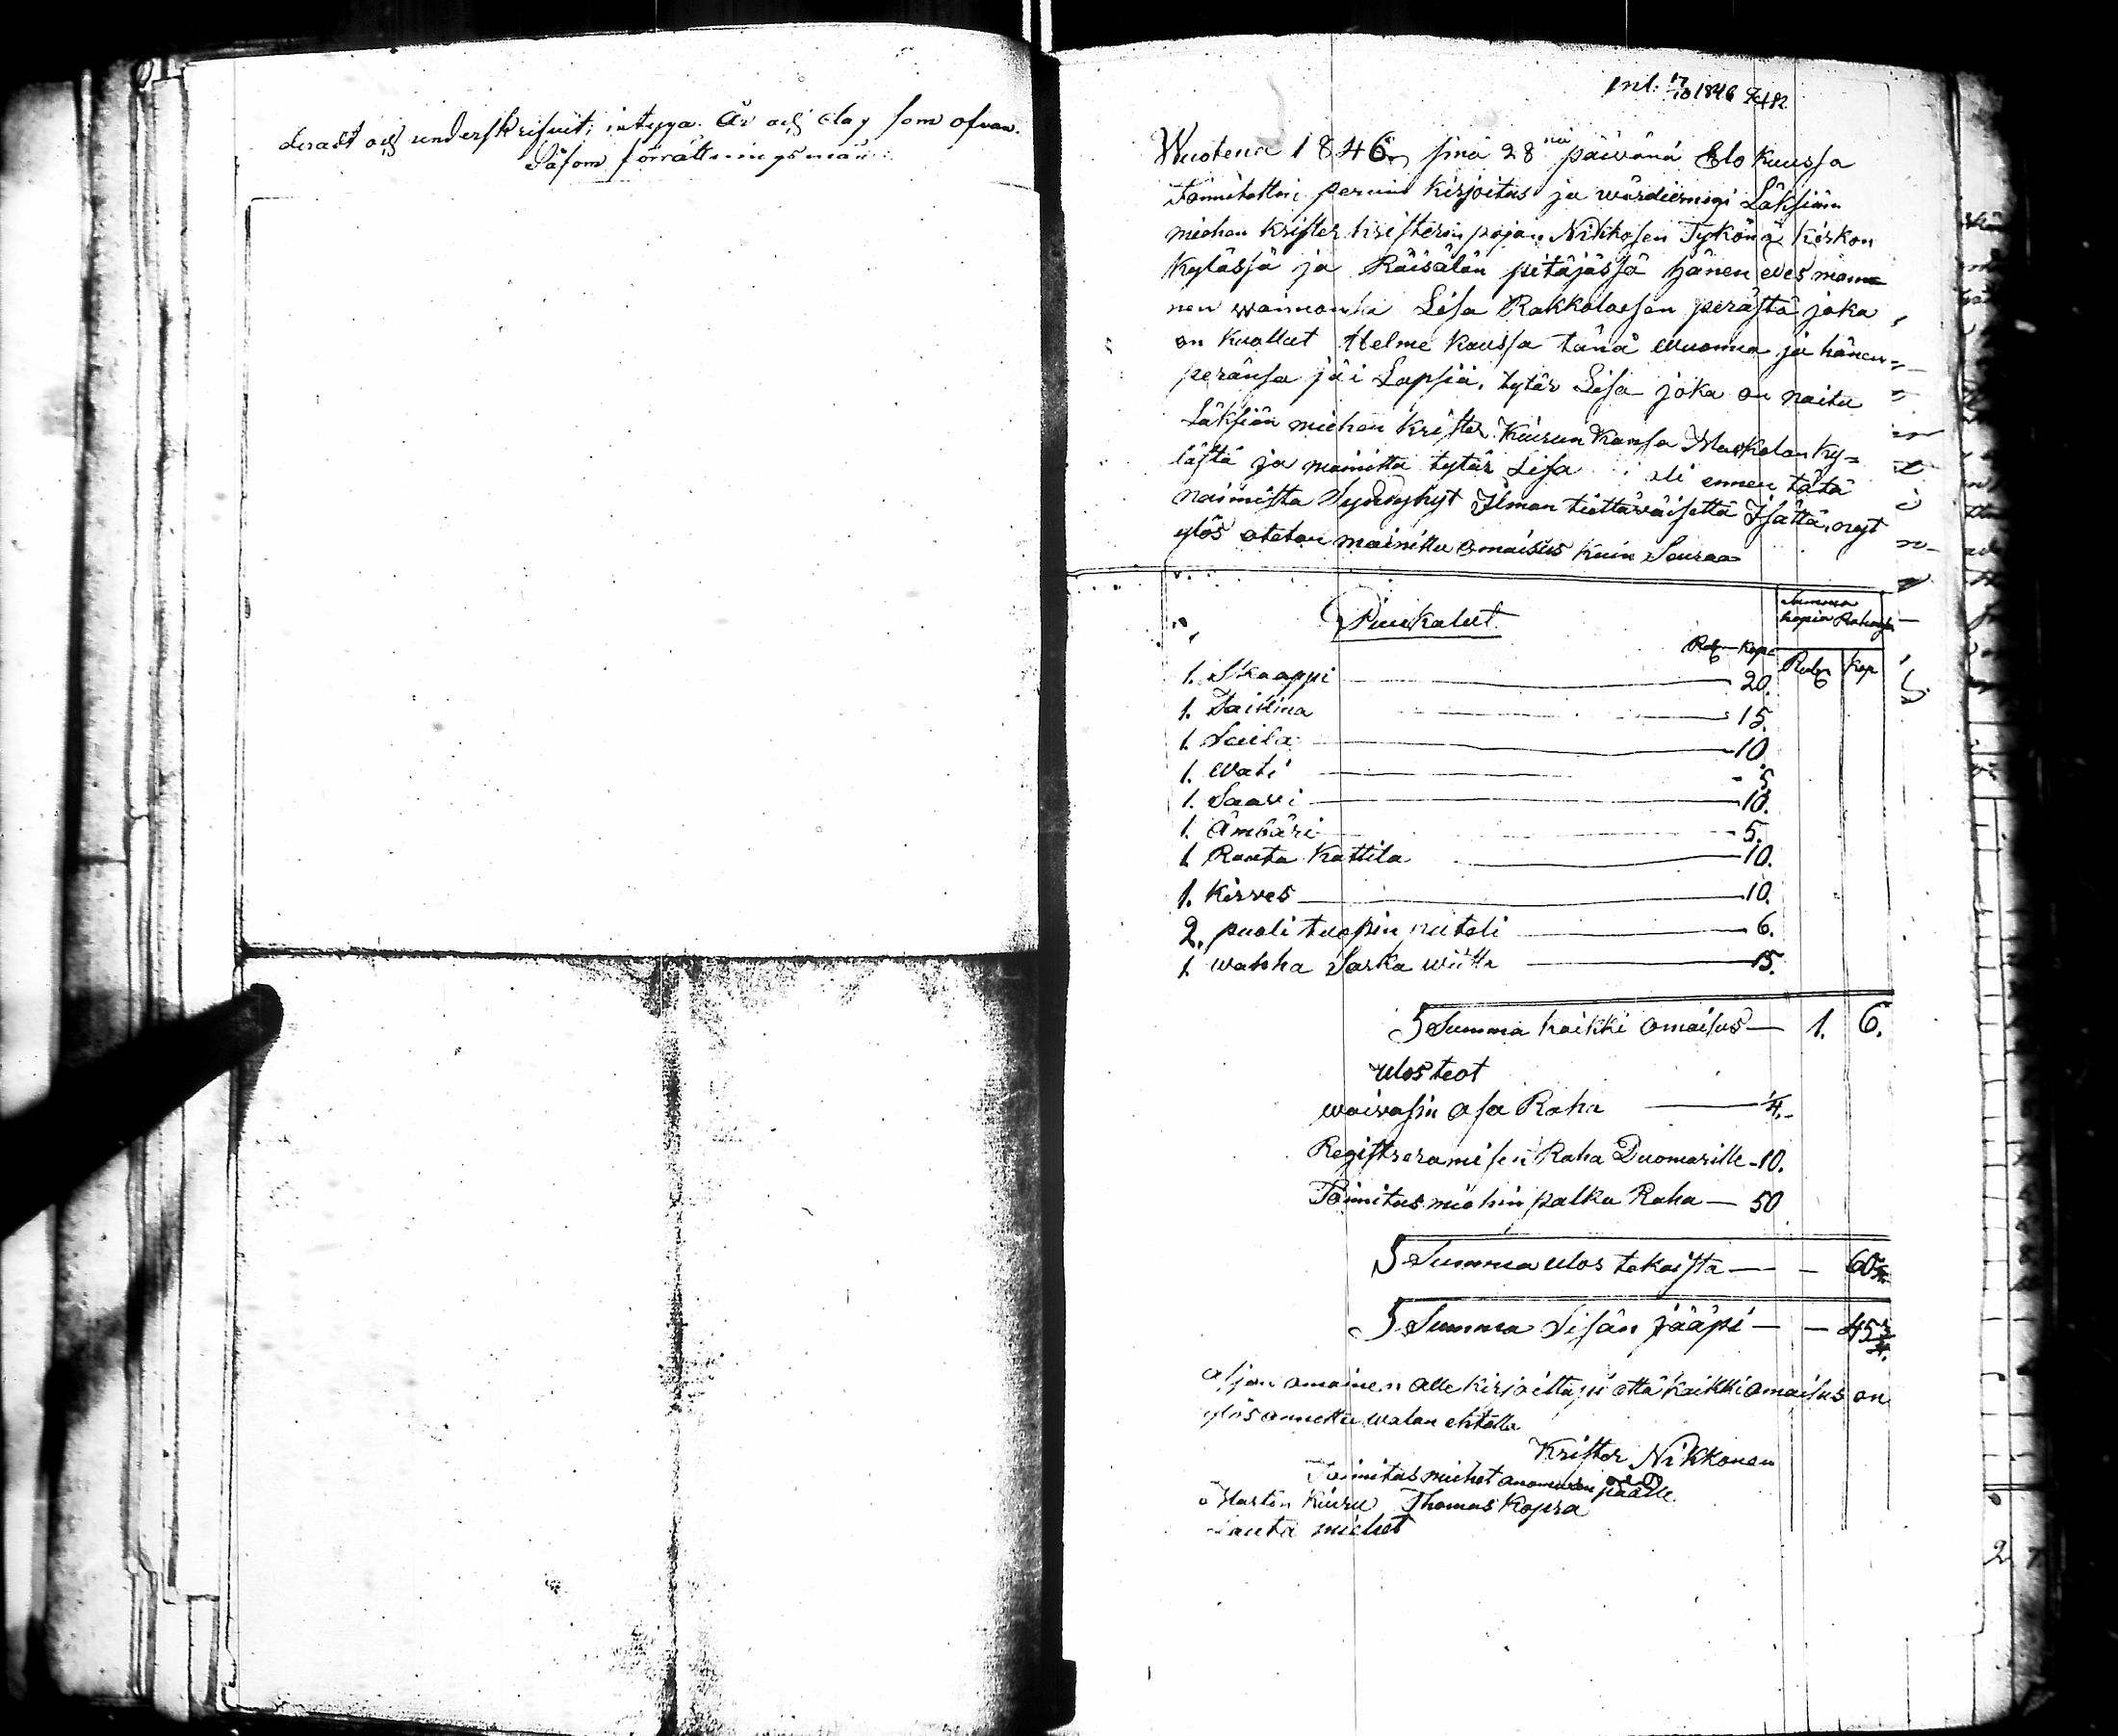 och underskrifvit, intyga. År och dag som ofvan.
Såsom förrättningsmän:
inl. 17/10 1846
Wuotena 1846 sinä 28 nä päivänä Elo Kuussa
Toimitettiin peruu Kirjoitus ja wärdierungi Läksiän
miehen Krister Kristerin pojan Nikkosen Tykönä Kirkon
Kylässä ja Räisälän pitäjässä hänen edes männe
nen waimonsa Lisa Rakkolaesen perästä joka
on Kuollut Helme Kuussa tänä wuonna ja hänen
peränsä jäi Lapsia, tytär Lisa joka on naitu
Läksiän miehen Krister Kiurun Kansa Ky=
lästä ja mainittu tytär Lisa oli ennen tätä
naimista Syndynyt Ilman tiettäväisettä Isättä, nyt
ylös otetan mainittu omaisus kuin Seuraa
Puukalut
Summa hopia Rahasa
Rub Kop
Rub Kop
1. Skaappi 20.
1. Taikina 15.
1. Saila 10
1. Wati 5
1. Saavi 10.
1. Ämbäri 5.
1. Rauta Kattila 10.
1. Kirves 10.
2. puoli tuopin puteli 6.
1. wanha Sarka wiitta 15.
Summa kaikki omaisus 1. 6.
Ulos teot
waivasin osa Raha 1/4.
Registreramisen Raha Duomarille 10.
Toimitus miehin palka Raha 50
Summa ulos tekoista 60 1/4
Summa Sisän jääpi 45 3/4.
Asian omainen alle kirjoittapi että kaikki omaisus on
ylös annettu walan ehtolla
Krister Nikkonen
Toimitus miehet anomisen päälle
Martin Kiuru Thomas Kopra
Lauta miehet